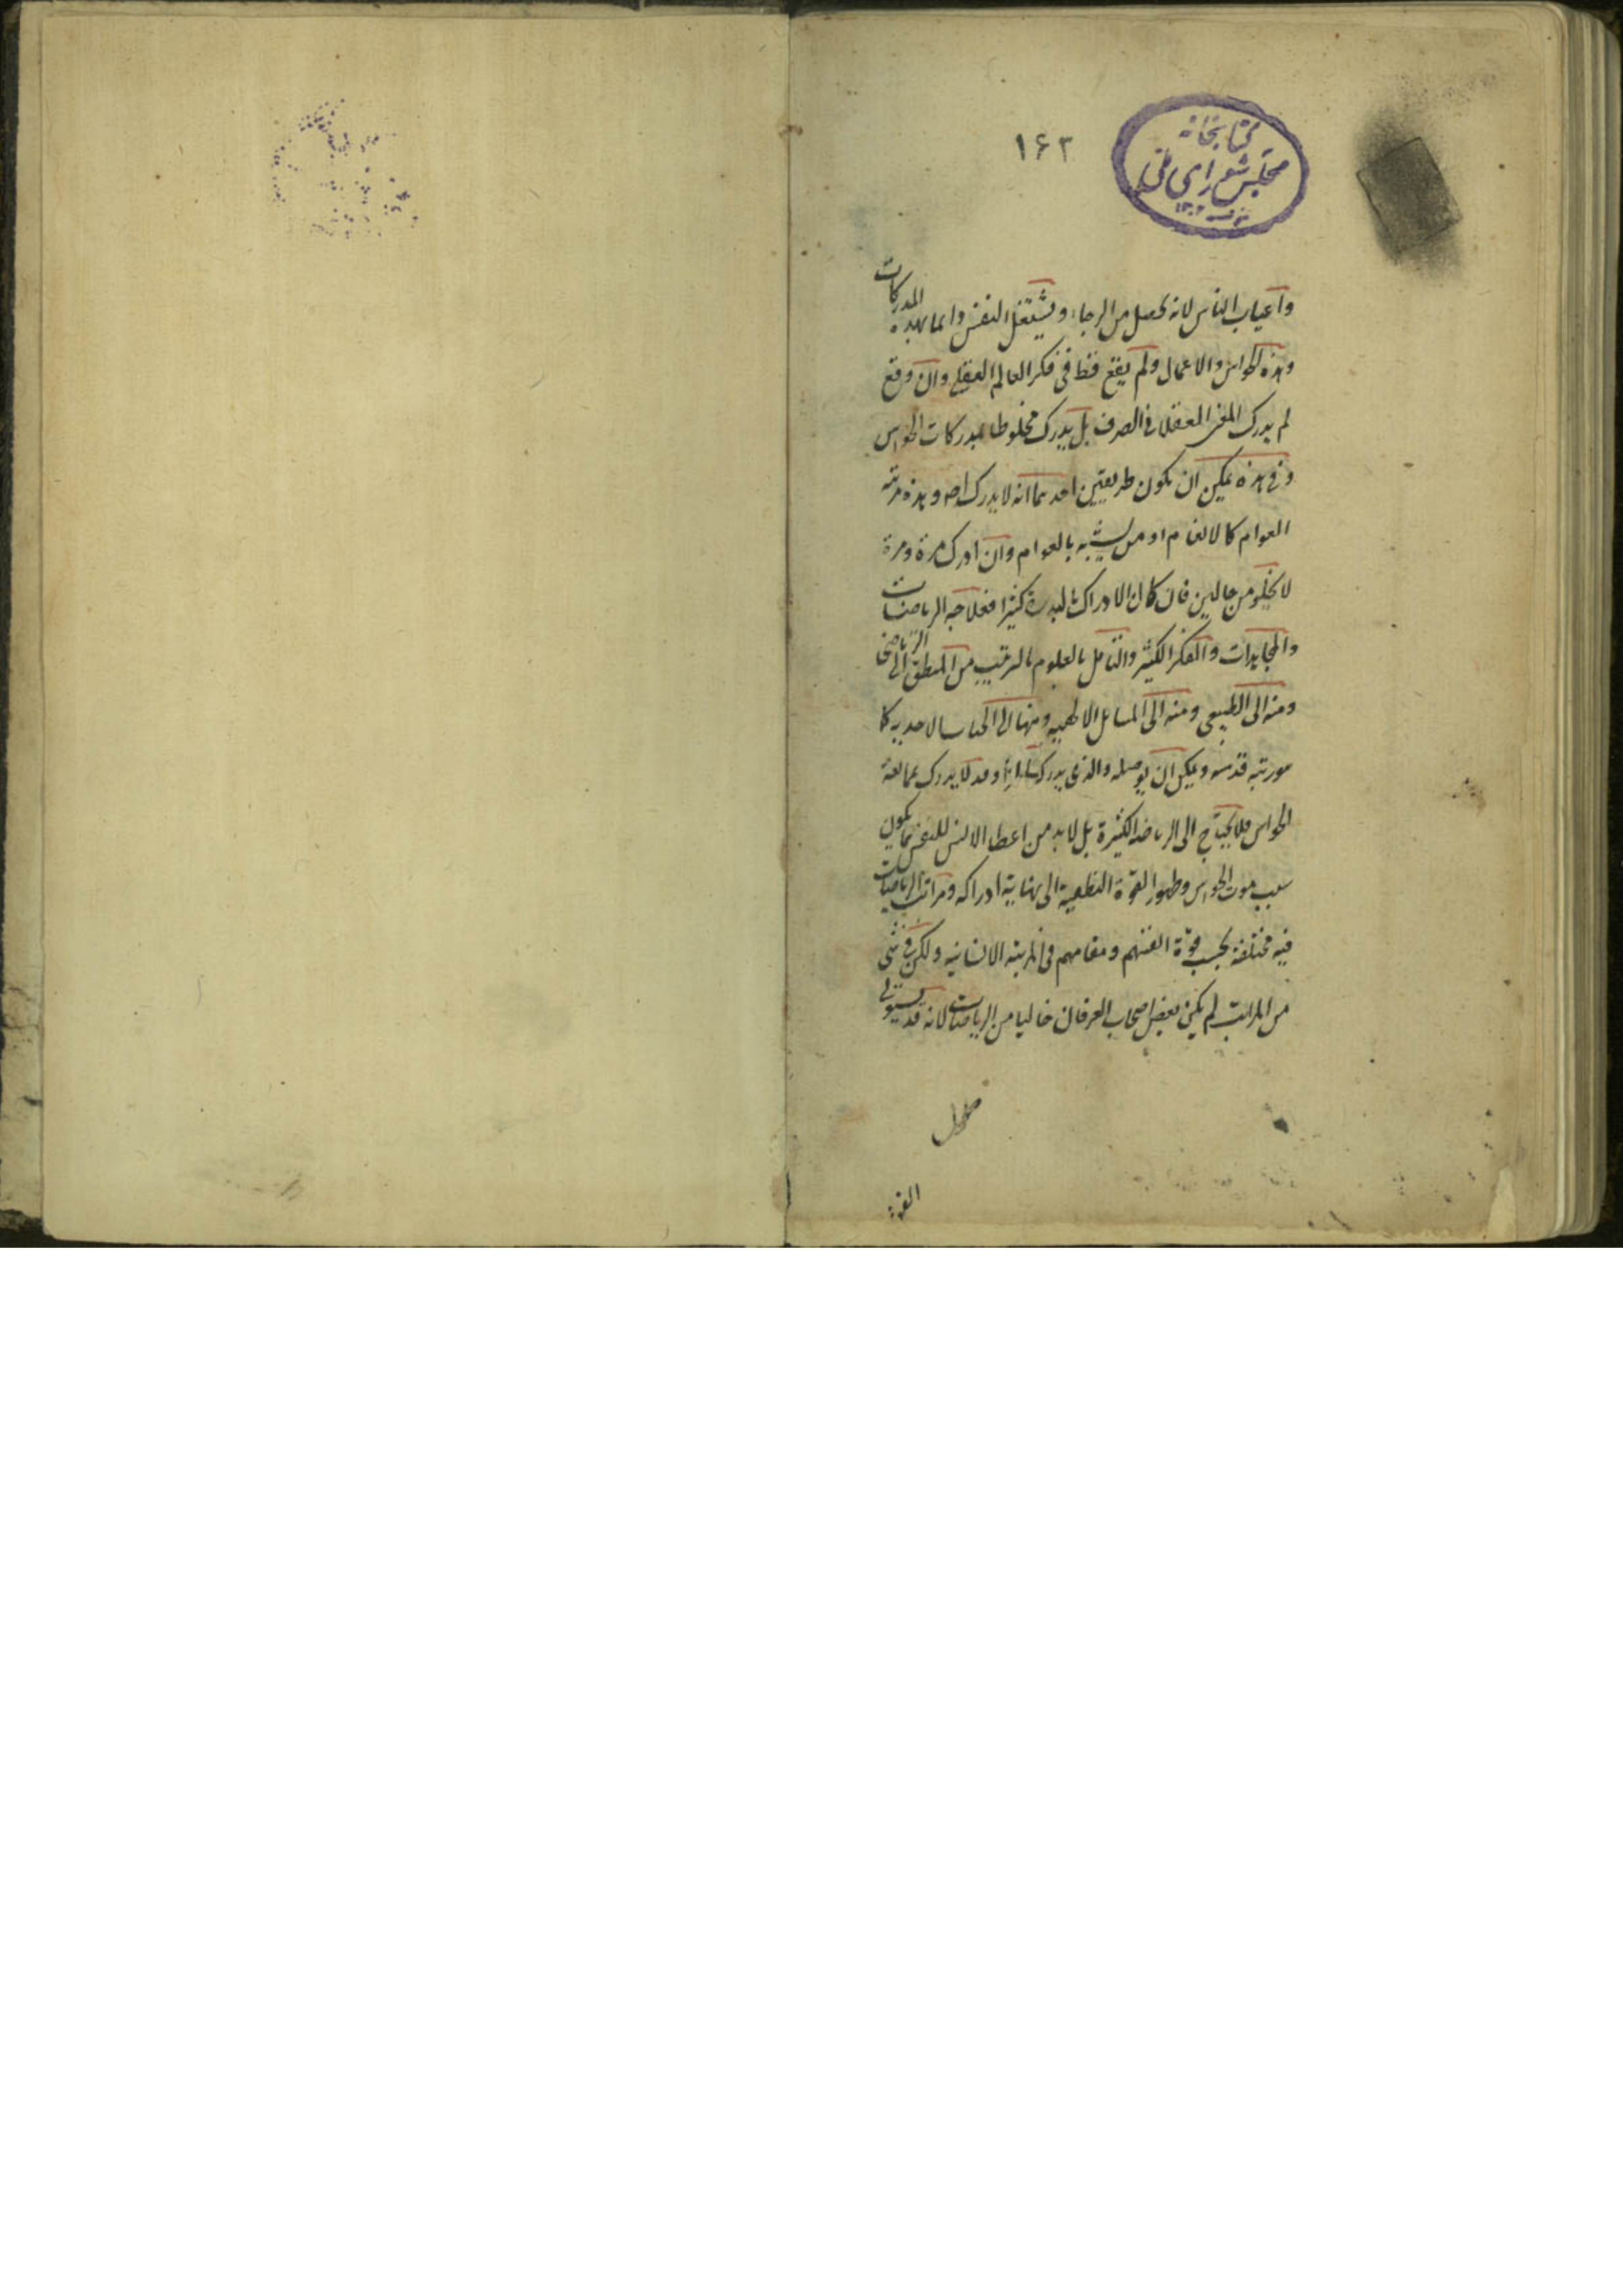 ۱۶۲
کتابخانه
مجلس شورای ملی
واغیاب الناس لانه یحصل من الرجاء ویشتغل النفس دایما بهذه المدرکات
وهذه الحواس والاعمال ولم یقع قط فی فکر العالم العقلی وان وقع
لم یدرک المعنی العقلانی الصرف بل یدرک مخلوطا بمدرکات الحواس
وفی هذه یمکن ان یکون طریقین احدیهما انه لا یدرک اصلا وهذه مرتبة
العوام کالانعام او من یشبه بالعوام وان ادرک مرة ومرة
لا یخلو من حالین فان کان الادراک کثیرا فعلاجه الریاضات
والمجاهدات والفکر الکثیر والتأمل بالعلوم بالترتیب من المنطق الی الریاضی
ومنه الی الطبیعی ومنه الی المسائل الالهیه ومنها الی
قدسه ویمکن ان یوصله والذی یدرک وقد لا یدرک بممانعة
الحواس فلا یحتاج الی الریاضة الکثیرة بل لابد من اعطا الانس للنفس بما یکون
سبب موت الحواس وظهور القوة النطقیة الی نهایة ادراکه ومراتب الریاضات
فیه مختلفة بحسب قوة انفسهم ومقامهم فی المرتبة الانسانیه ولکن فی شی
من المراتب لم یکن بعض اصحاب العرفان خالیا من الریاضات لانه قد یستولی